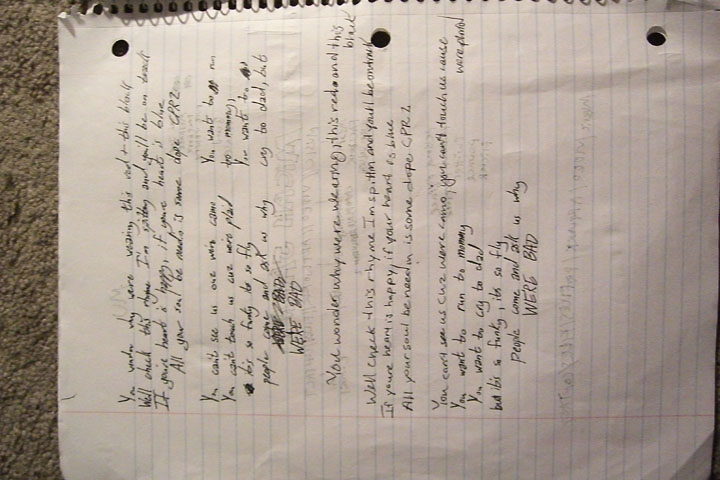 You wonder why were wearing this red + this black
Well check this rhyme I'm spitting and you'll be on track
If youre heart is happy, if youre heart is blue
All your soul be needs is some dope CPR2
You cants see us cuz were camo
You cant touch us cuz were plaid
its so funky be so fly
people come and ask us why
WERE BAD
You want to run
to mommy,
You wants to
cry to dad, but
You wonder why were wearing this red and this
black
Well check this rhyme Im spittin and youll be on track
If youre heart is happy, if your heart is blue
All your soul be needin is some dope CPR2
You can't see us cuz were camo, you can't touch us cause
were plaid
You want to run to mommy
You want to cry to dad
but its so funky, its so fly
people come and ask us why
WERE BAD